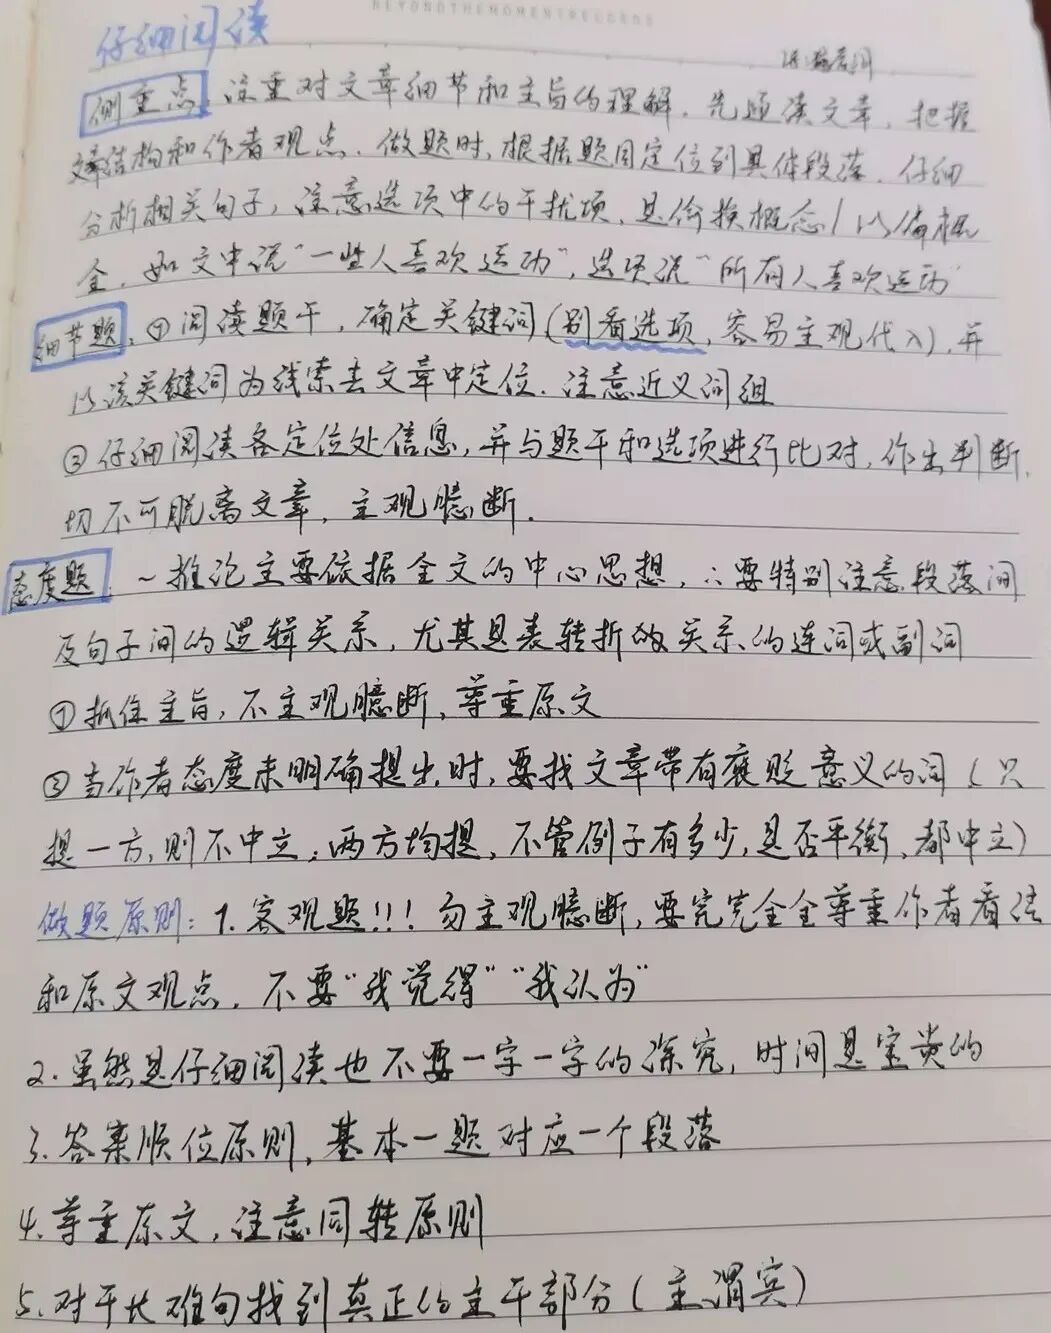 BEYONDTHEMOMENTRECORDS
仔细阅读
侧重点：注重对文章细节和主旨的理解，先通读文章，把握
文章结构和作者观点，做题时，根据题目定位到具体段落，仔细
分析相关句子，注意选项中的干扰项，是偷换概念/以偏概
全，如文中说“一些人喜欢运动”，选项说“所有人喜欢运动
细节题，①阅读题干，确定关键词(别看选项，容易主观代入)，并
以该关键词为线索去文章中定位，注意近义词组
②仔细阅读各定位处信息，并与题干和选项进行比对，作出判断，
切不可脱离文章，主观臆断．
态度题．~推论主要依据全文的中心思想，∴要特别注意段落间
及句子间的逻辑关系，尤其是表转折的关系的连词或副词
①抓住主旨，不主观臆断，尊重原文
②当作者态度未明确提出时，要找文章带有褒贬意义的词(只
提一方，则不中立；两方均提，不管例子有多少，是否平衡，都中立)
做题原则：1.客观题!!!勿主观臆断，要完完全全尊重作者看法
和原文观点，不要“我觉得”“我认为”
2.虽然是仔细阅读也不要一字一字的深究，时间是宝贵的
3.答案顺位原则，基本一题对应一个段落
4.尊重原文，注意同转原则
5.对于长难句找到真正的主干部分(主谓宾)